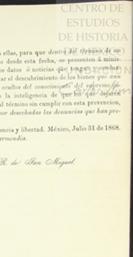 CENTRO DE
ESTUDIOS
DE HISTORIA
ellas, para que dentro del término de
desde esta fecha, se presenten á
datos ó noticias que tengan y
el descubrimiento de los bienes que
ocultos del conocimiento del supremo
la inteligencia de que los que dejaren
el término sin cumplir con esta prevencion,
desechadas las denuncias que
encia y libertad. México, Julio 31 de 1868.
R. de San Miguel.